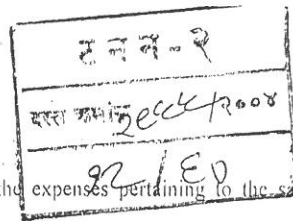 ट न न - २
दस्त क्रमांक २९८८/२००४
१२ / ६०
the expenses pertaining to the sa